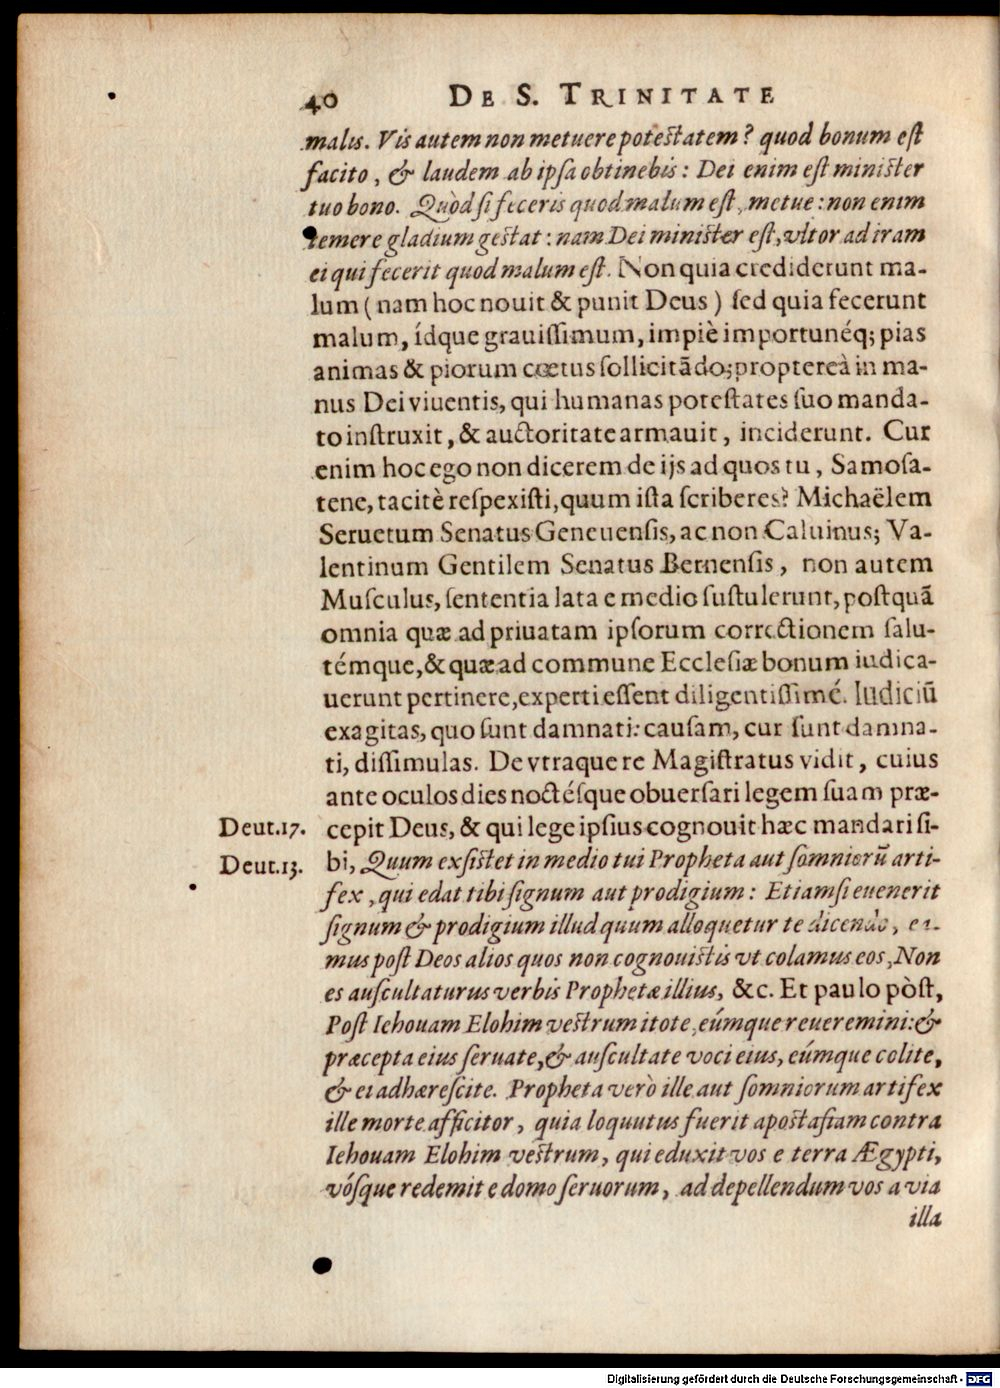 40 DE S. TRINITATE
malis. Vis autem non metuere potestatem? quod bonum est
facito, & laudem ab ipsa obtinebis: Dei enim est minister
tuo bono. Quòd si feceris quod malum est, metue: non enim
temere gladium gestat: nam Dei minister est, vltor ad iram
ei qui fecerit quod malum est. Non quia crediderunt ma-
lum (nam hoc nouit & punit Deus) sed quia fecerunt
malum, ídque grauissimum, impiè importunéq; pias
animas & piorum cœtus sollicitādo; proptereà in ma-
nus Dei viuentis, qui humanas potestates suo manda-
to instruxit, & auctoritate armauit, inciderunt. Cur
enim hoc ego non dicerem de ijs ad quos tu, Samosa-
tene, tacitè respexisti, quum ista scriberes? Michaëlem
Seruetum Senatus Geneuensis, ac non Caluinus; Va-
lentinum Gentilem Senatus Bernensis, non autem
Musculus, sententia lata e medio sustulerunt, postquā
omnia quæ ad priuatam ipsorum correctionem salu-
témque, & quæ ad commune Ecclesiæ bonum iudica-
uerunt pertinere, experti essent diligentissimé. Iudiciū
exagitas, quo sunt damnati: causam, cur sunt damna-
ti, dissimulas. De vtraque re Magistratus vidit, cuius
ante oculos dies noctésque obuersari legem suam præ-
Deut.17. cepit Deus, & qui lege ipsius cognouit hæc mandari si-
Deut.13. bi, Quum exsistet in medio tui Propheta aut somniorū arti-
fex, qui edat tibi signum aut prodigium: Etiamsi euenerit
signum & prodigium illud quum alloquetur te dicendo, ea-
mus post Deos alios quos non cognouistis vt colamus eos, Non
es auscultaturus verbis Prophetæ illius, &c. Et paulo pòst,
Post Iehouam Elohim vestrum itote, eúmque reueremini: &
præcepta eius seruate, & auscultate voci eius, eúmque colite,
& ei adhærescite. Propheta verò ille aut somniorum artifex
ille morte afficitor, quia loquutus fuerit apostasiam contra
Iehouam Elohim vestrum, qui eduxit vos e terra Ægypti,
vósque redemit e domo seruorum, ad depellendum vos a via
illa
Digitalisierung gefördert durch die Deutsche Forschungsgemeinschaft - DFG